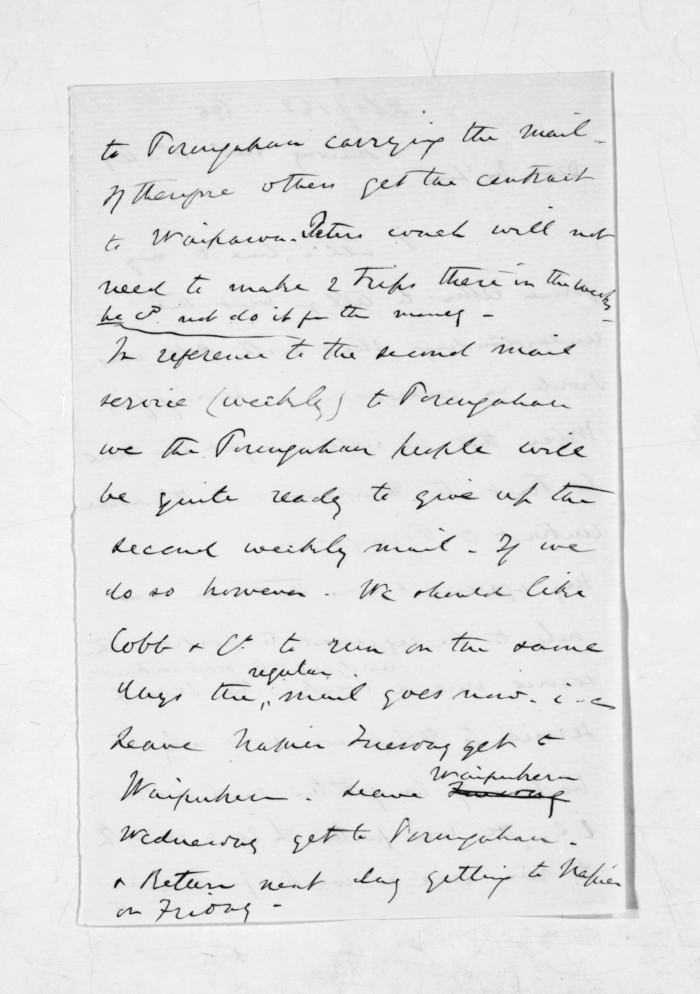 to Porangahau carrying the mail -
If therefore others get the contract
to Waipawa. Peters coach will not
need to make 2 trips there in the week -
he cd. not do it for the money -
In reference to the second mail
service (weekly) to Porangahau
we the Porangahau people will
be quite ready to give up the
second weekly mail - If we
do so however. We should like
Cobb & Co. to run on the same
regular
days the mail goes now. i-e
Leave Napier Tuesday get to
Waipukura
Waipukura. Leave Tuesday
Wednesday get to Porangahau.
& Return next day getting to Napier
on Friday -